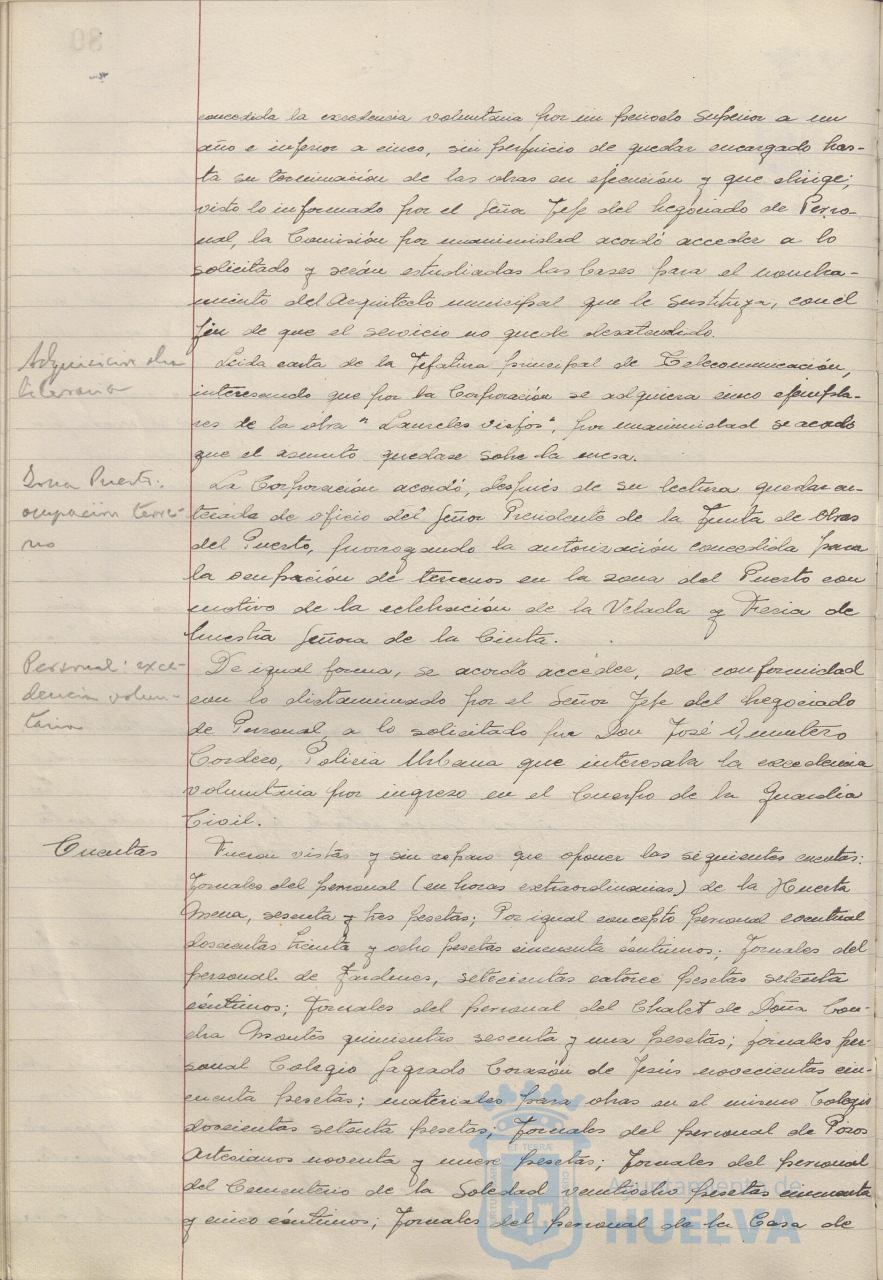 concedida la excedencia voluntaria por un periodo superior a un
año e inferior a cinco, sin perjuicio de quedar encargado has-
ta su terminación de las obras en ejecución y que dirige;
visto lo informado por el Señor Jefe del Negociado de Perso-
nal, la Comisión por unanimidad acordó acceder a lo
solicitado y serán estudiadas las bases para el nombra-
miento del Arquitecto municipal que le sustituya, con el
fin de que el servicio no quede desatendido.
Adquisicion de
literaria
Leida carta de la Jefatura principal de Telecomunicación,
interesando que por la Corporación se adquiera cinco ejempla-
res de la obra "Laureles viejos", por unanimidad se acordo
que el asunto quedase sobre la mesa.
Zona Puerto:
ocupación terre-
no
La Corporación acordó, después de su lectura quedar en-
terada de oficio del Señor Presidente de la Junta de Obras
del Puerto, prorrogando la autorización concedida para
la ocupación de terrenos en la zona del Puerto con
motivo de la celebración de la Velada y Feria de
Nuestra Señora de la Cinta.
Personal: exce-
dencia volun-
taria
De igual forma, se acordó acceder, de conformidad
con lo dictaminado por el Señor Jefe del Negociado
de Personal, a lo solicitado por Don José
Cordero, Policia Urbana que interesaba la excedencia
voluntaria por ingreso en el Cuerpo de la Guardia
Civil.
Cuentas
Fueron vistas y sin reparo que oponer las siguientes cuentas:
Jornales del personal (en horas extraordinarias) de la Huerta
Mena, sesenta y tres pesetas; Por igual concepto personal eventual
doscientas treinta y ocho pesetas cincuenta céntimos; Jornales del
personal de Jardines, setecientas catorce pesetas setenta
céntimos; Jornales del personal del Chalet de Doña Con-
cha Montes quinientas sesenta y una pesetas; jornales per-
sonal Colegio Sagrado Corazón de Jesús novecientas cin-
cuenta pesetas; materiales para obras en el mismo Colegio
doscientas setenta pesetas; Jornales del personal de Pozos
Artesianos noventa y nueve pesetas; Jornales del personal
del Cementerio de la Soledad pesetas cincuenta
y cinco céntimos; Jornales del personal de la Casa de
Ayuntamiento de
HUELVA